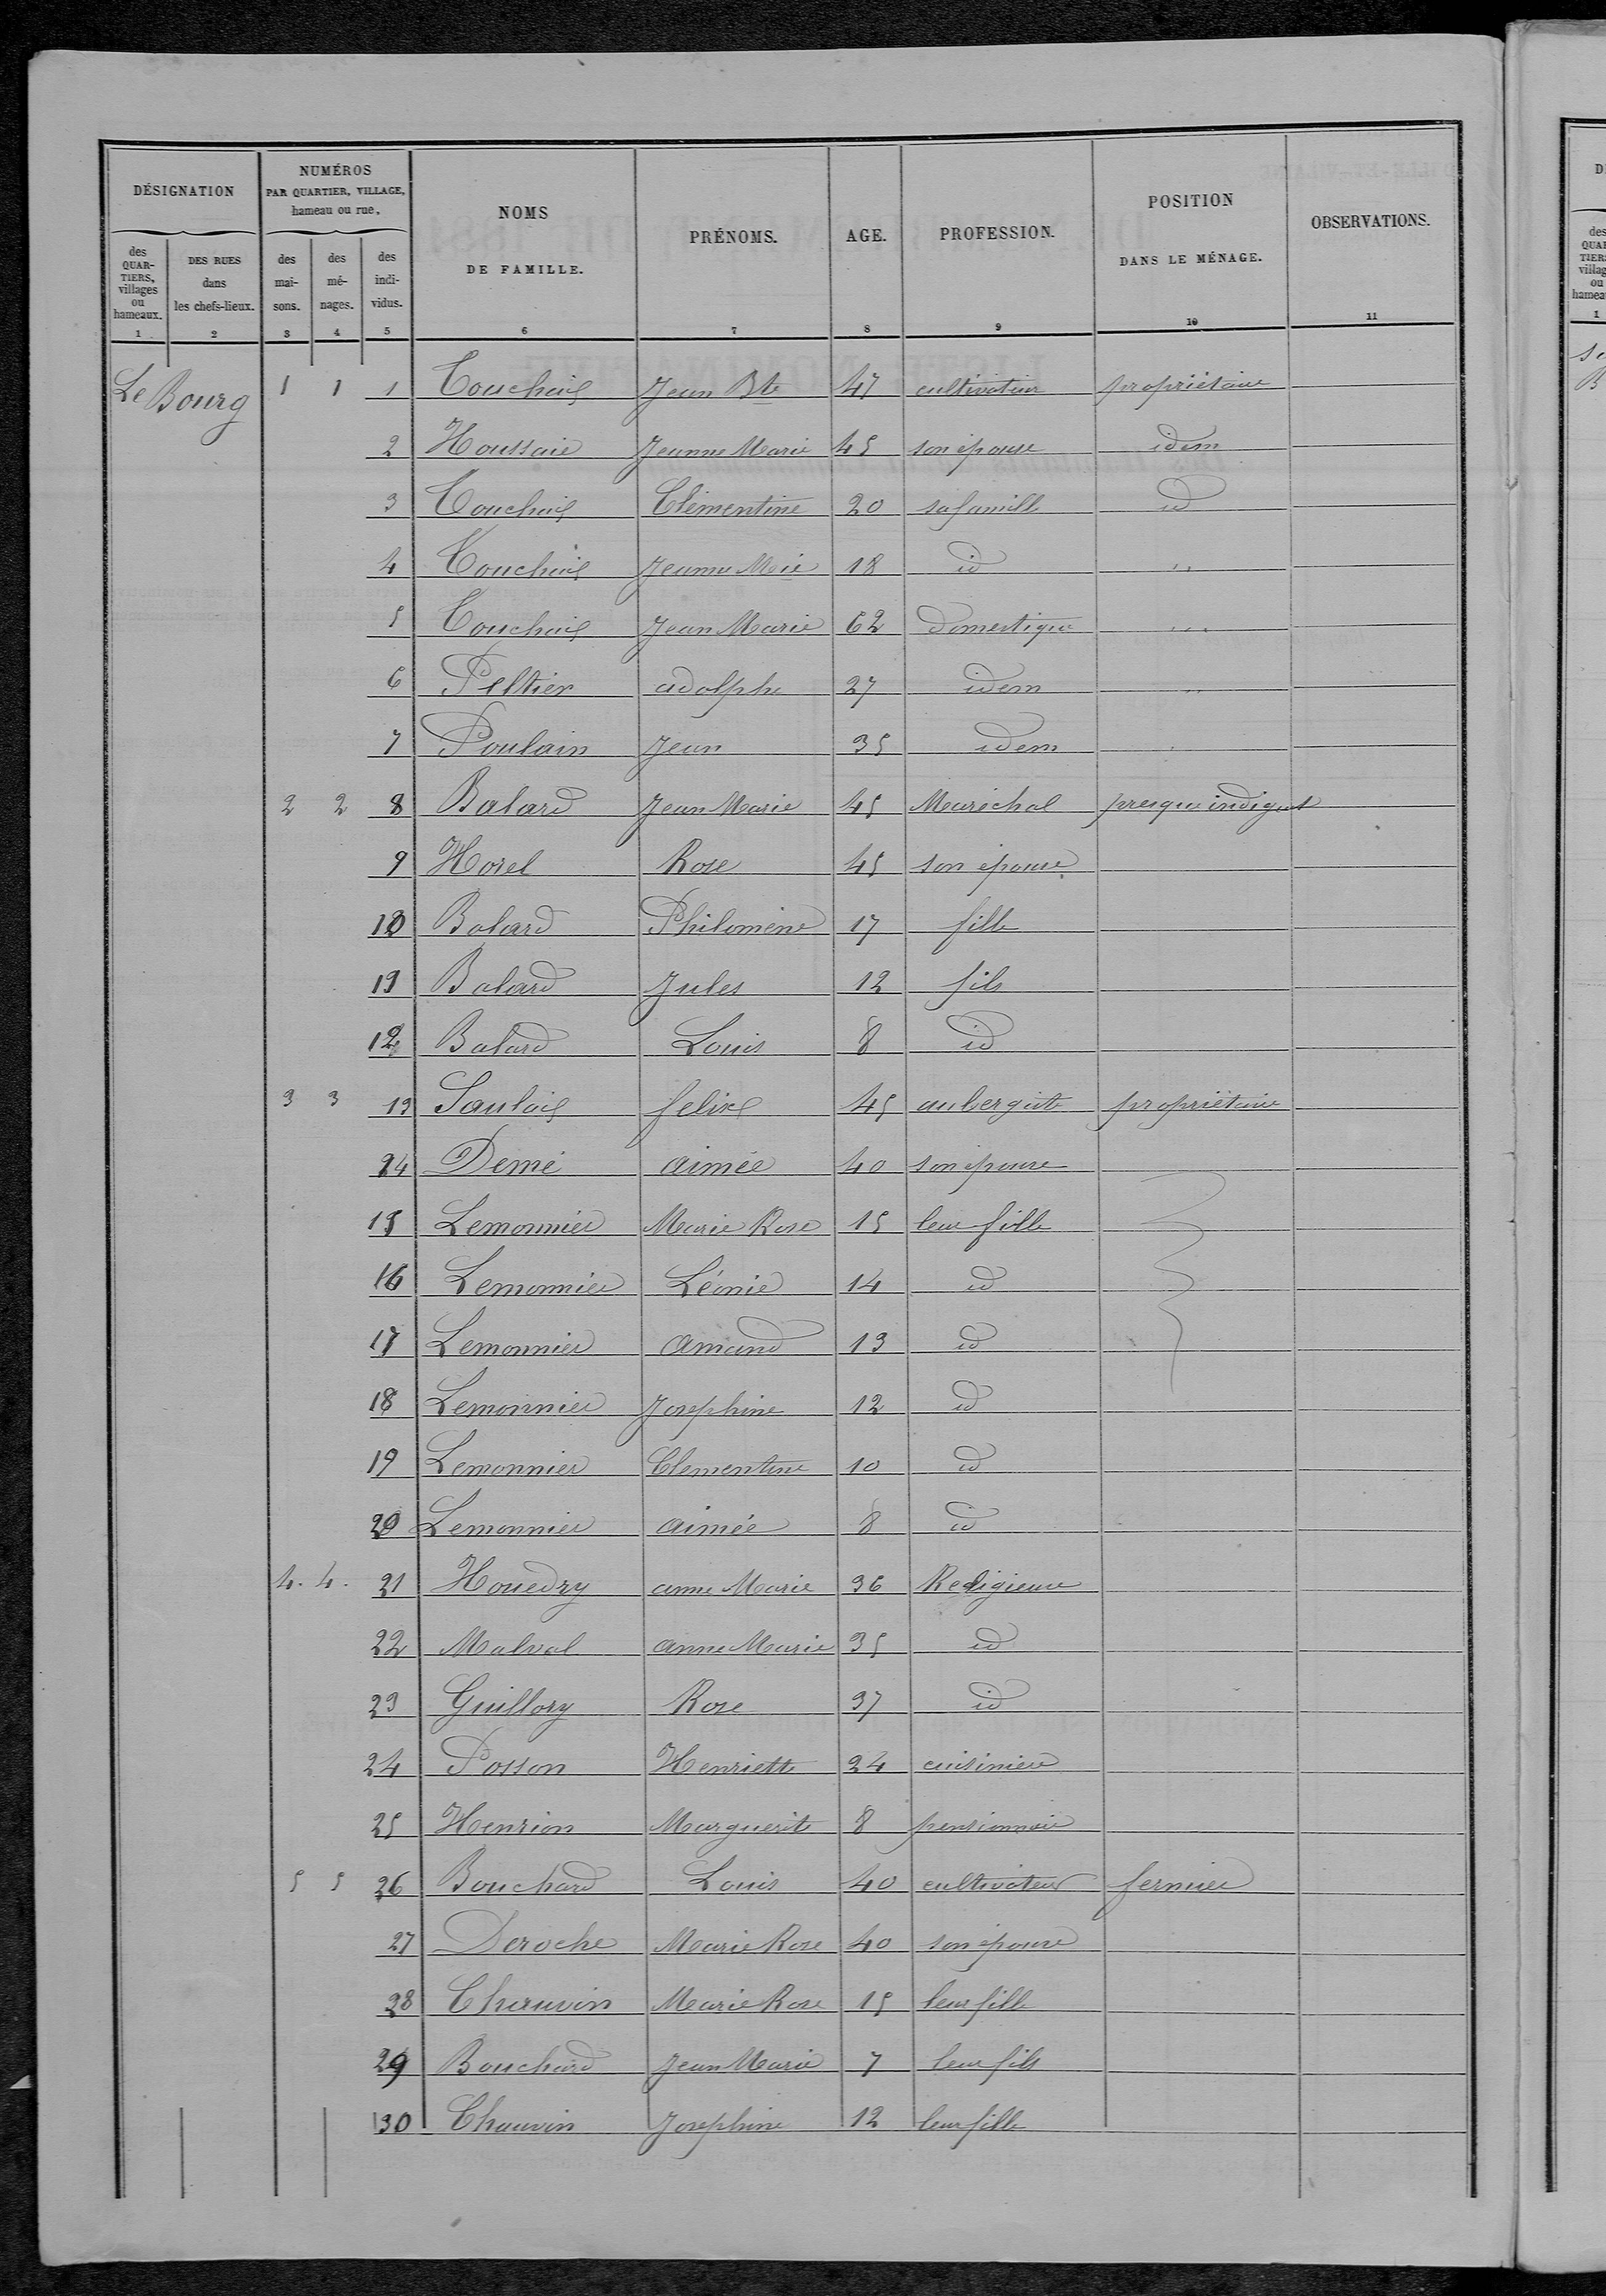 DÉSIGNATION
NUMÉROS PAR QUARTIER, VILLAGE, hameau ou rue,
NOMS DE FAMILLE.
PRÉNOMS.
AGE.
PROFESSION.
POSITION DANS LE MÉNAGE.
OBSERVATIONS.
des QUARTIERS, villages ou hameaux.
DES RUES dans les chefs-lieux.
des mai-sons.
des mé-nages.
des indi-vidus.
1 2 3 4 5 6 7 8 9 10 11
Le Bourg 1 1 1 Touchais Jean Bte 47 cultivateur propriétaire
2 Houssaie Jeanne Marie 45 son épouse idem
3 Touchais Clémentine 20 sa famille id
4 Touchais Jeanne Mie 18 id "
5 Touchais Jean Marie 62 domestique "
6 Peltier adolphe 27 idem "
7 Poulain Jean 35 idem
2 2 8 Balard Jean Marie 45 Maréchal presque indigent
9 Horel Rose 45 son épouse
10 Balard Philomène 17 fille
11 Balard Jules 12 fils
12 Balard Louis 8 id
3 3 13 Saulais felix 45 aubergiste propriétaire
14 Demé aimée 40 son épouse
15 Lemonnier Marie Rose 15 leur fille
16 Lemonnier Léonie 14 id
17 Lemonnier Amand 13 id
18 Lemonnier Josephine 12 id
19 Lemonnier Clementine 10 id
20 Lemonnier aimée 8 id
4. 4. 21 Houedry anne Marie 36 Religieuse
22 Malval anne Marie 35 id
23 Guillory Rose 37 id
24 Posson Henriette 24 cuisiniere
25 Henrion Marguerite 8 pensionnaire
5 5 26 Bouchard Louis 40 cultivateur fermier
27 Deroche Marie Rose 40 son épouse
28 Chauvin Marie Rose 15 leur fille
29 Bouchard Jean Marie 7 leur fils
30 Chauvin Josephine 12 leur fille